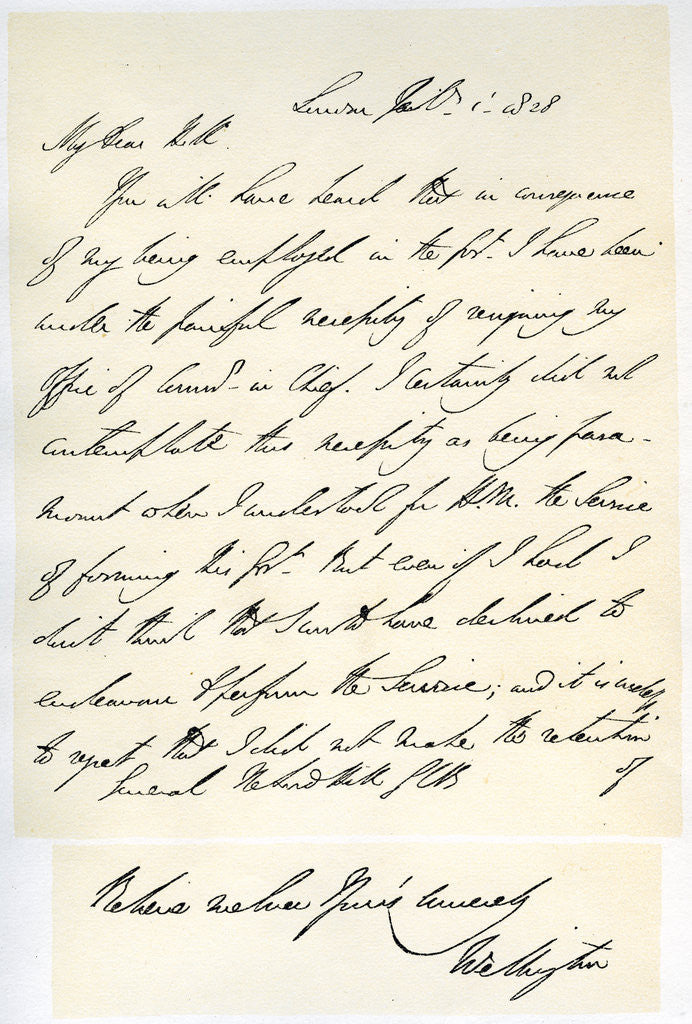 London Feb. 1. 1828
My Dear Hill.
You will have heard that in consequence
of my being employed in the Govt. I have been
under the painful necessity of resigning my
Office of Commr. in Chief. I certainly did not
contemplate this necessity as being para-
mount when I undertook for H.M. the Service
of forming his Govt. But even if I had I
don't think that I could have declined to
endeavour to perform the Service; and it is useless
to repeat that I did not make the retention
of
General The Lord Hill GCB
Believe me Ever Yours sincerely
Wellington